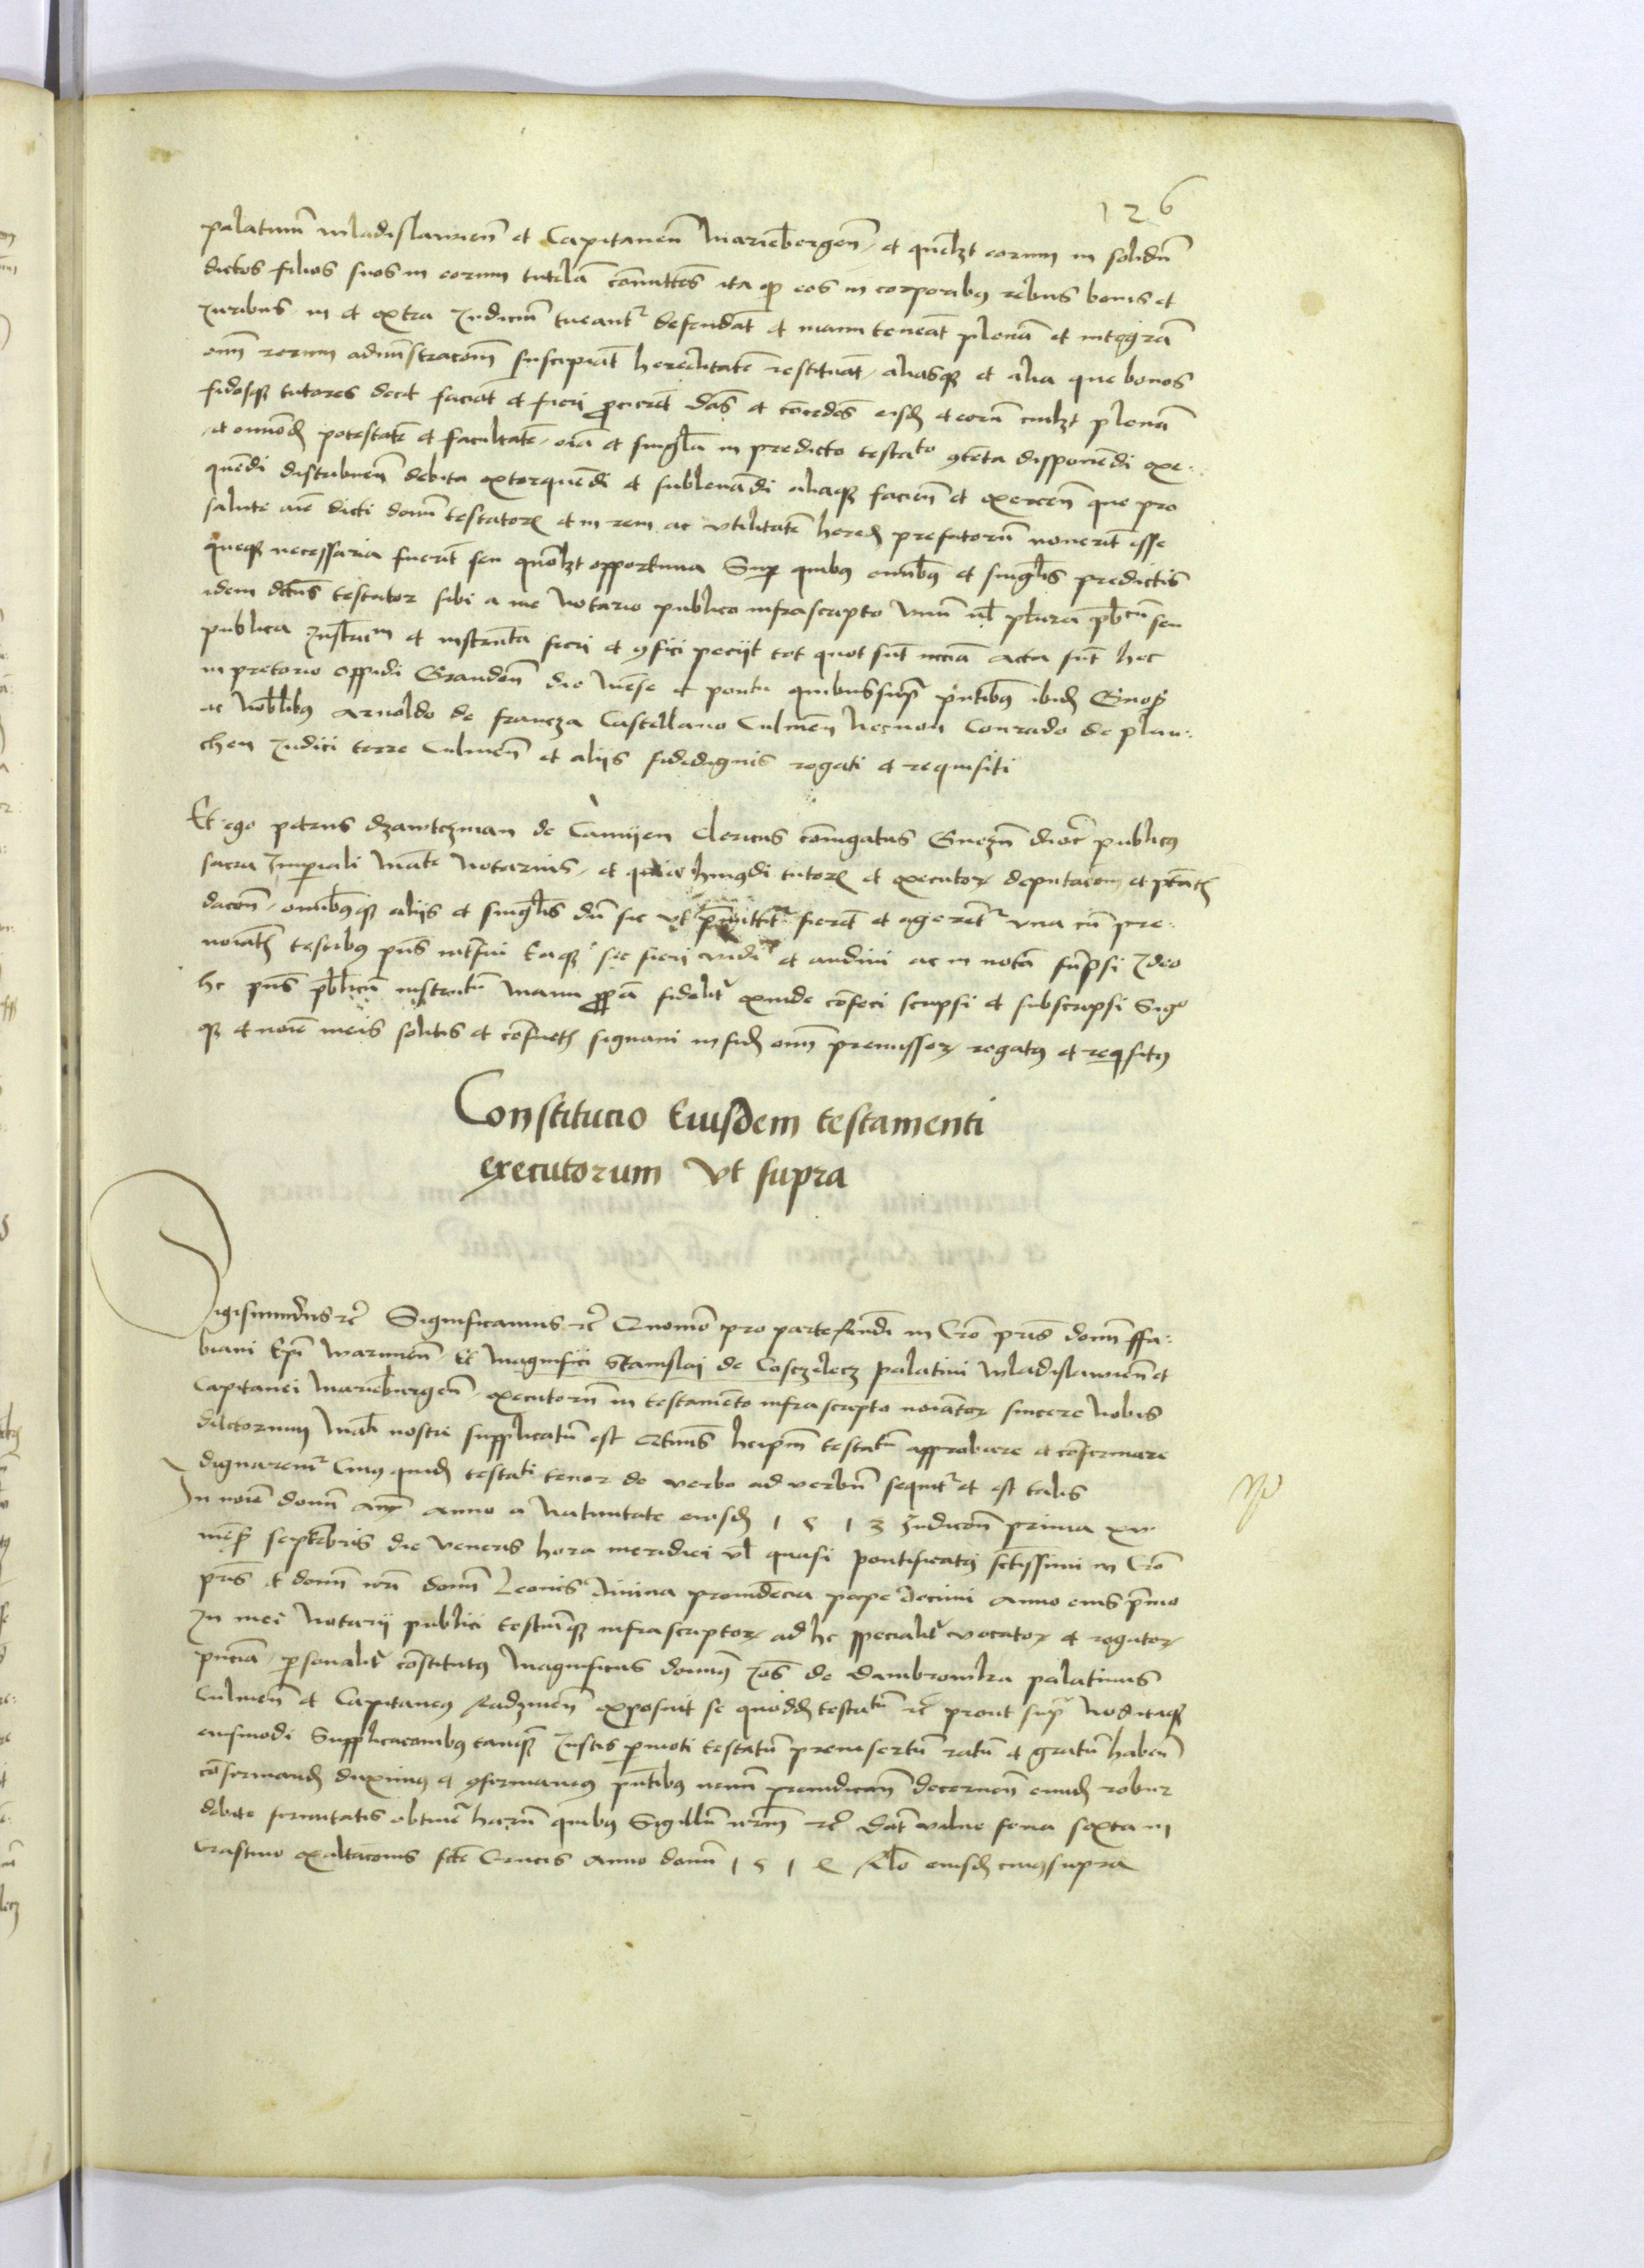 126
palatinum wladislavien et Capitaneum Marienbergen, et quelibet eorum in solidum
dictos filios suos in eorum tutelam committens ita quod eos in corporibus rebus bonis et
Juribus in et extra Judicium tueantur defendant et manu teneant plenam et integram
omnium rerum administracionem suscipiant hereditatem restituant, aliasque et alia que bonos
fidosque tutores decet faciant et fieri procurent dans et concedens eisdem et eorum cuilibet plenam
et omnimodam potestatem et facultatem, omnia et singula in predicto testamento contenta disponendi exe:
quendi distribuendi debita extorquendi et sublevandi aliaque faciendi et exercendi que pro
salute anime dicti domini testatoris et in rem ac utilitatem heredum prefatorum noverint esse
queque necessaria fuerint seu quomodolibet opportuna Super quibus omnibus et singulis predictis
idem dominus testator sibi a me Notario publico infrascripto unum vel plura publicum seu
publica Instrumentum et instrumenta fieri et confici peciit tot quot sunt necessaria Acta sunt hec
in pretorio oppidi Grauden die Mense et pontu quibus supra presentibus ibidem Generosis
ac Nobilibus Arnoldo de francza Castellano Culmen Necnon Conrado de plau:
chen Judici terre Culmen et aliis fidedignis rogati et requisiti
Et ego petrus dzawtczman de Camyen Clericus coniugatus Gnezn dioc publicus
sacra Imperiali Mate Notarius, et quia huiusmodi tutorum et executorum deputacioni et potestatis
dacioni, omnibusque aliis et singulis dum sic ut premittitur fierent et agerentur una cum pre:
nominatis testibus presens interfui Eaque sic fieri vidi et audivi ac in notam sumpsi Ideo
hoc presens publicum instrumentum Manu propria fideliter exinde confeci scripsi et subscripsi Signo
que et nomine meis solitis et consuetis signavi in fidem omnium premissorum rogatus et requisitus
Constitucio Eiusdem testamenti
executorum Ut supra
Sigismundus etc Significamus etc Quomodo pro parte Reverendi in Cristo patris domini ffa:
biani Episcopi warmien Et Magnifici Stanislai de Cosczelecz palatini wladislavien et
Capitanei Marienburgen, executorum in testamento infrascripto nominatorum sincere Nobis
dilectorum Mati nostre supplicatum est quatenus huiusmodi testamentum approbare et confirmare
dignaremur Cuius quidem testamenti tenor de verbo ad verbum sequitur et est talis
In nomine domini amen Anno a Nativitate eiusdem 1 5 1 3 Indicione prima xvi
mensis septembris die veneris hora meridiei vel quasi pontificatus sanctissimi in Cristo
patris et domini nostri domini Leonis divina providencia pape decimi anno eius primo
In mei Notarii publici testiumque infrascriptorum ad hoc specialiter vocatorum et rogatorum
presencia, personaliter constitutus Magnificus dominus Joannes de dambrowka palatinus
Culmen et Capitaneus Radzinen exposuit se quoddam testamentum etc prout supra Nos itaque
eiusmodi Supplicacionibus tanquam Justis permoti testamentum preinsertum ratum et gratum habentes
confirmandum duximus et confirmamus presentibus decernentes eiusdem robur
debite firmitatis obtinere harum quibus Sigillum nostrum etc Datum vilne feria sexta in
crastino exaltacionis sancte Crucis Anno domini 1 5 1 4 Relacio eiusdem cuius supra